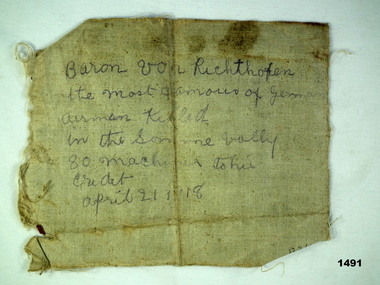 Baron Von Richthofen
the most famous of German
airman Killed
in the Somme vally
80 machines to his
credet
april 21 1918
1491